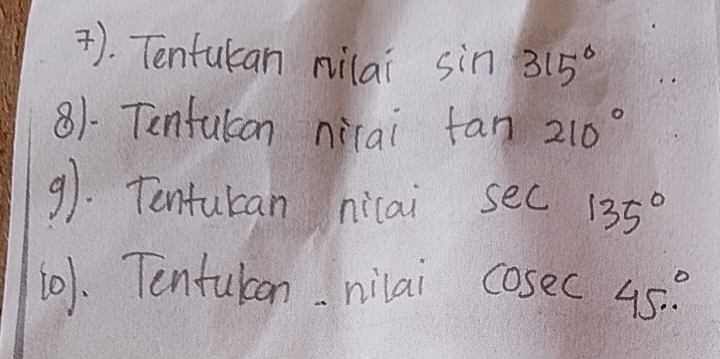 7). Tentukan nilai sin 315° ..
8). Tentukan nilai tan 210°
9). Tentukan nilai sec 135°
10). Tentukan. nilai cosec 45..°